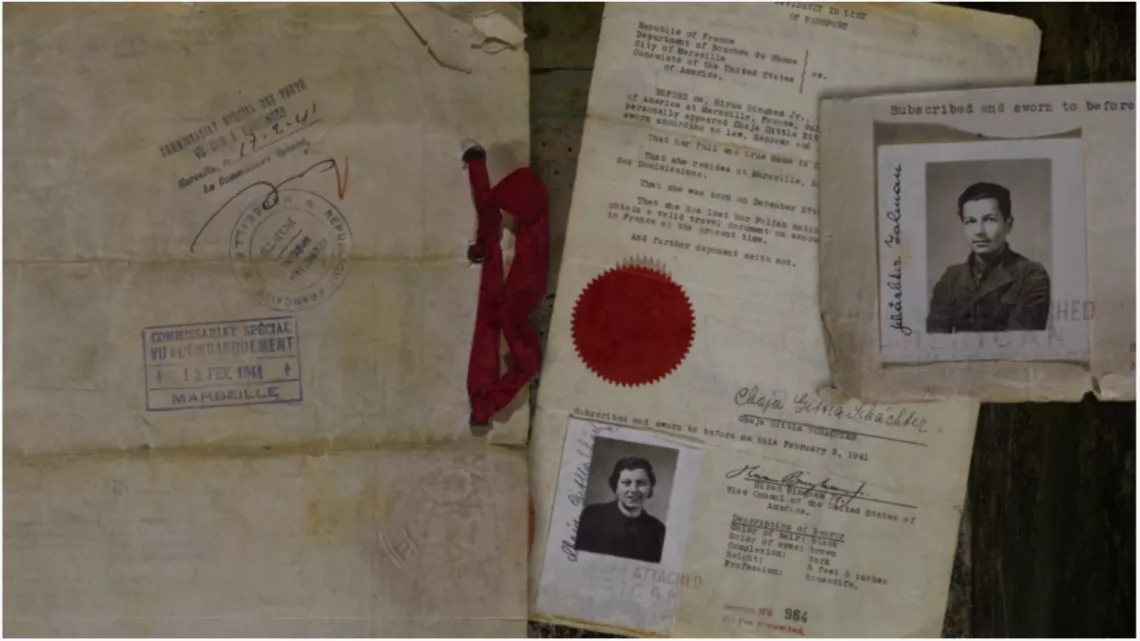 COMMISSARIAT SPÉCIAL DES PORTS
Marseille, le 17-2-41
Le Commissaire Spécial,
COMMISSARIAT SPÉCIAL
VU A L'EMBARQUEMENT
18 FEV. 1941
MARSEILLE
AFFIDAVIT IN LIEU
OF PASSPORT
Republic of France
Department of Bouches du Rhone
City of Marseille
Consulate of the United States
of America.
ss.
BEFORE me, Hiram Bingham Jr.,
of America at Marseille, France,
personally appeared Chaja Gittla
sworn according to law, deposes and
That her full and true name is
That she resides at Marseille,
des Dominicaines.
That she was born on December 27th
That she has lost her Polish
obtain a valid travel document on
in France at the present time.
And further deponent saith not.
Chaja Gittla Schächter
Chaja Gittla SCHACHTER
Subscribed and sworn to before me this February 3, 1941
Hiram Bingham Jr.
Vice Consul of the United States of
America.
Description of bearer
Color of hair: black
Color of eyes: brown
Complexion: dark
Height: 5 feet 5 inches
Profession: housewife.
ATTACHED
Service No. 964
Subscribed and sworn to before
Schächter Zalman